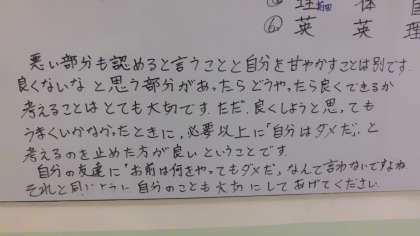 ⑤ 理 体 国
⑥ 英 英 理
悪い部分も認めると言うことと自分を甘やかすことは別です。
良くないな と思う部分があったらどうやったら良くできるか
考えることはとても大切です。ただ、良くしようと思っても
うまくいかなかったときに、必要以上に「自分はダメだ」と
考えるのを止めた方が良いということです。
自分の友達に"お前は何をやってもダメだ"なんて言わないですよね
それと同じように 自分のことも大切にしてあげてください。